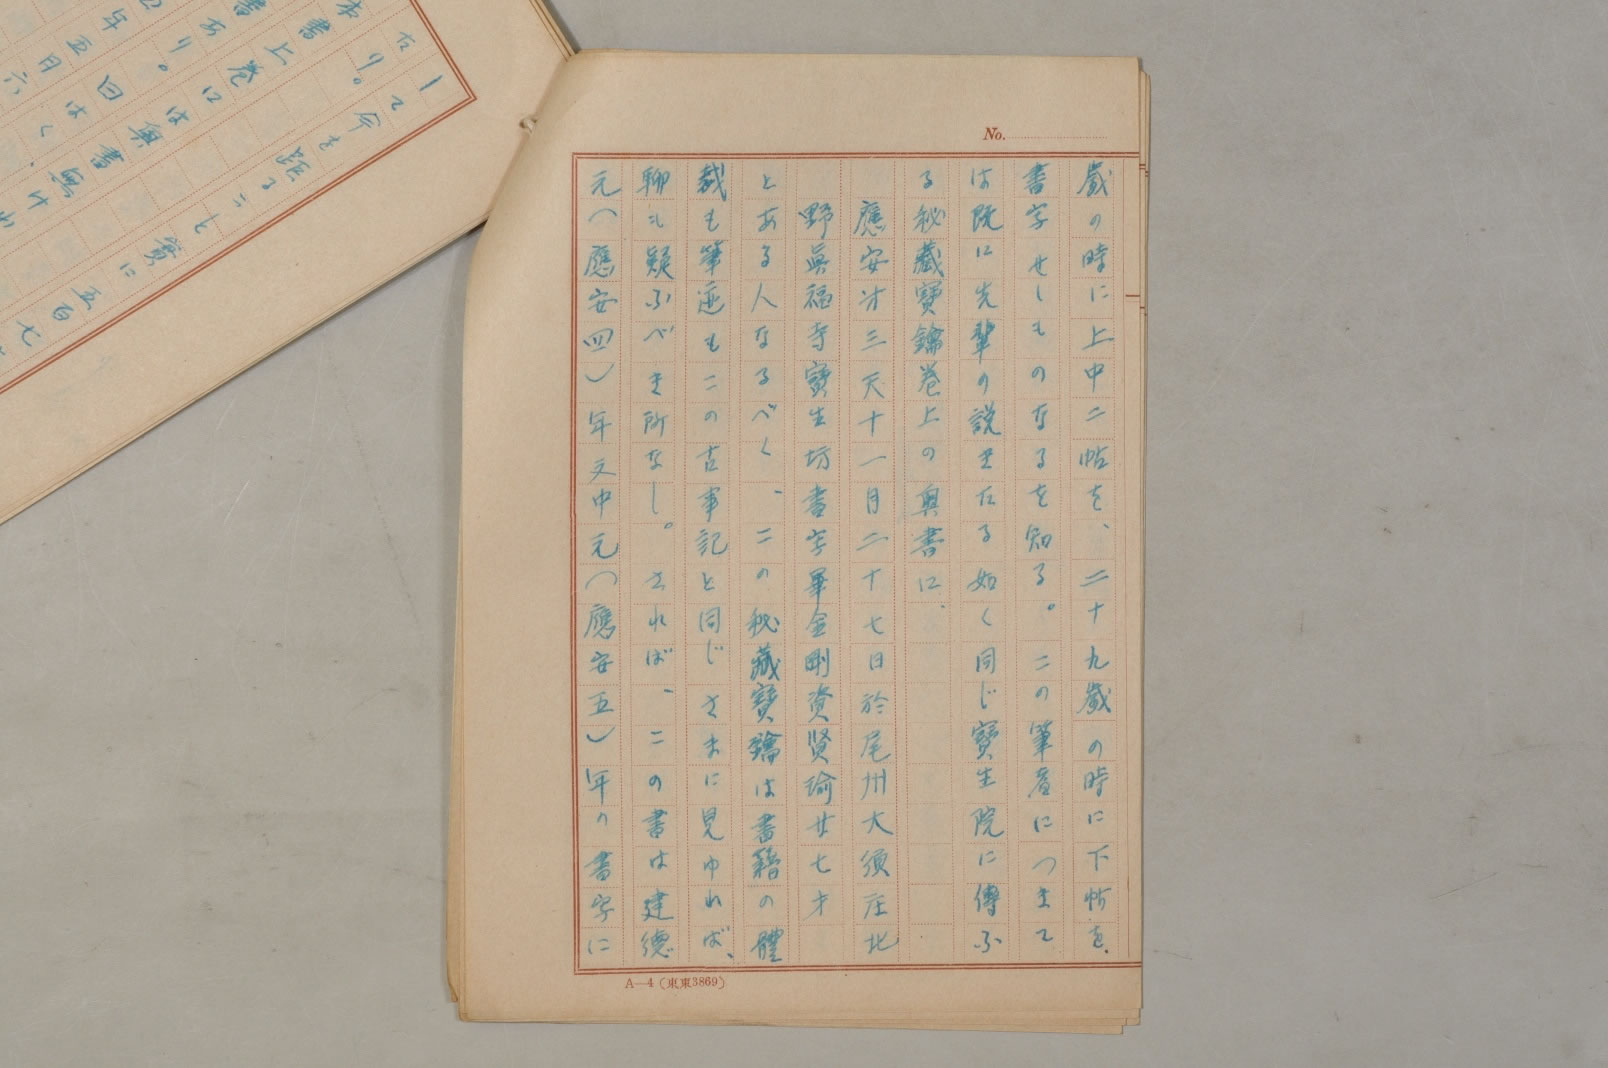 No.
歲の時に上中二帖を、二十九歲の時に下帖を
書字せしものなるを知る。この筆者につきて
は既に先輩の説きたる如く同じ寶生院に傳ふ
る秘藏寶鑰卷上の奥書に、
應安才三天十一月二十七日於尾州大須庄北
野眞福寺寶生坊書字畢金剛資賢瑜廿七才
とある人なるべく、この秘藏寶鑰は書籍の體
裁も筆迹もこの古事記と同じさまに見ゆれば、
聊も疑ふべき所なし。されば、この書は建德
元（應安四）年文中元（應安五）年の書字に
A—4（東東3869）
たり。
て今を距ること實に五百七
書上卷には奥書無け
書あり。
年五月六
曰はく、